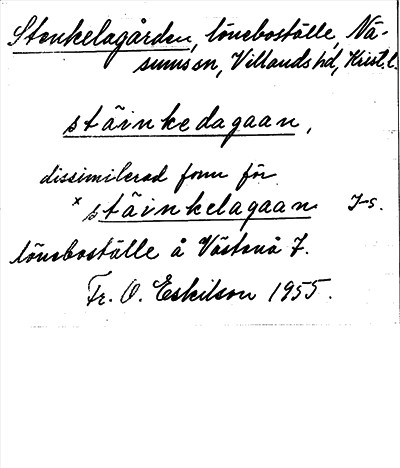 Stenkelagården, löneboställe, Nä-
sums sn, Villands hd, Krist. l.
stäinkedagaan,
dissimilerad form för
x stäinkelagaan J-s.
löneboställe å Västanå 7.
Fr. O. Eskilson 1955.